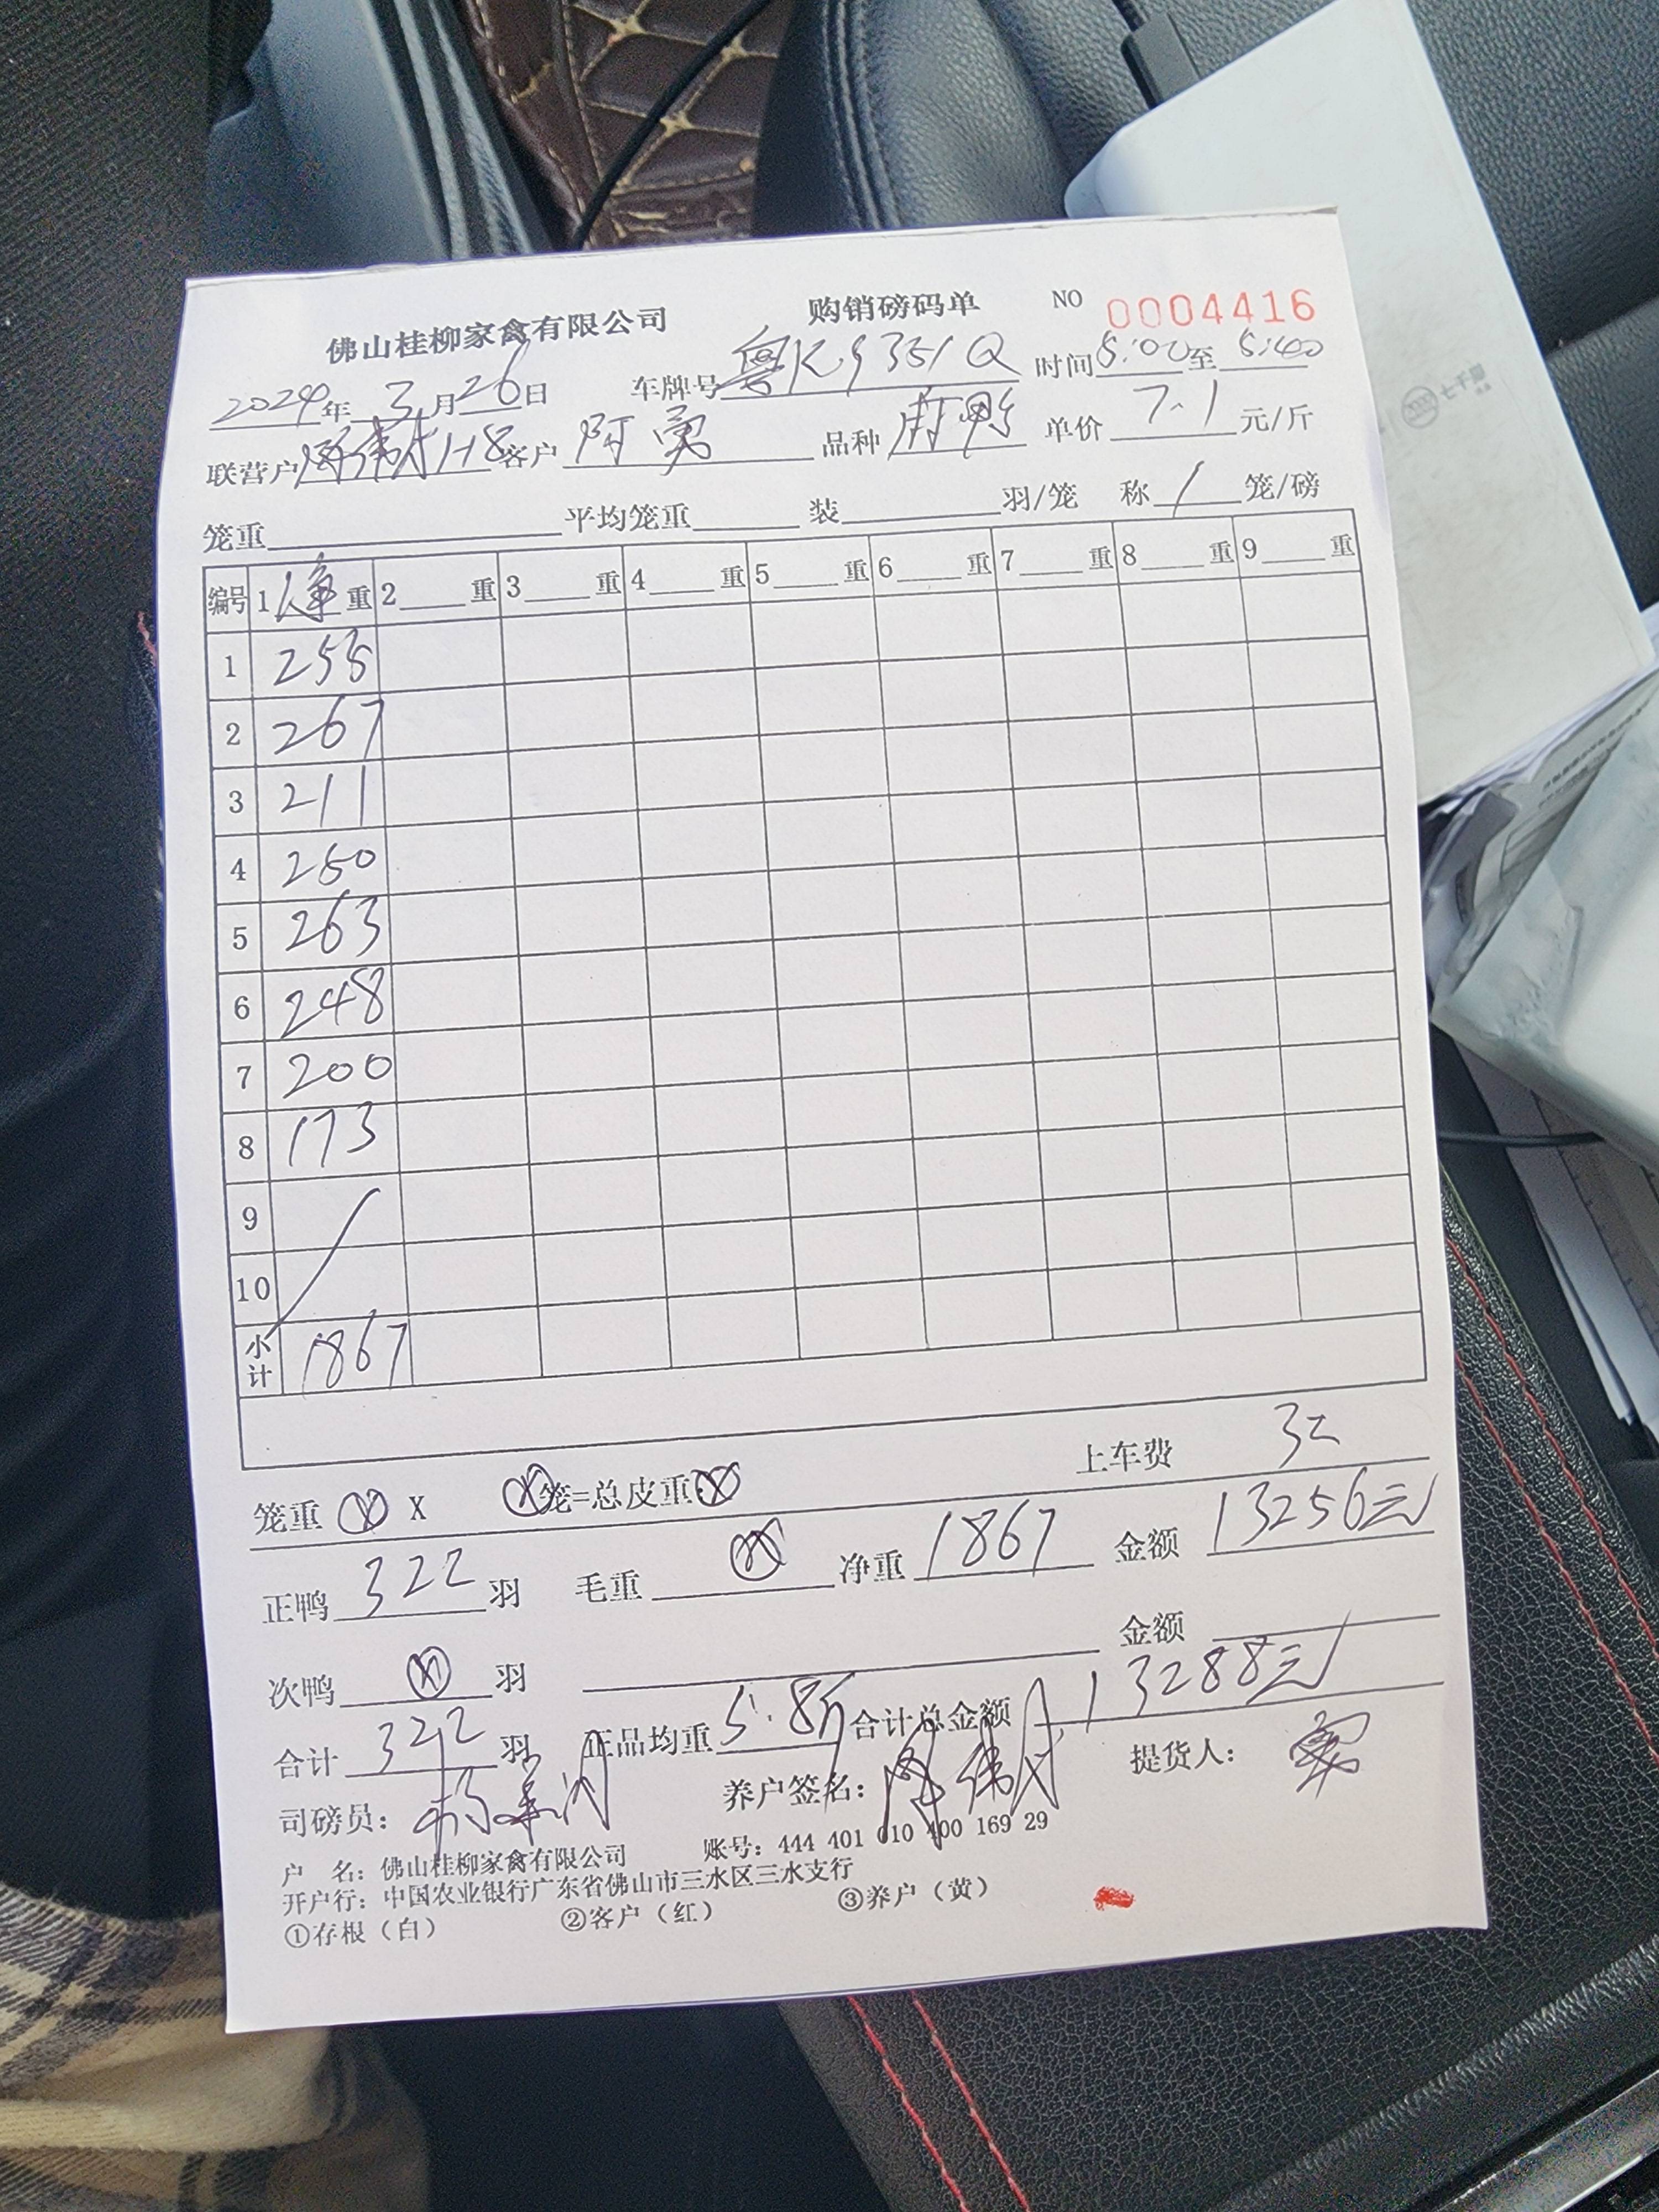 佛山桂柳家禽有限公司 购销磅码单 NO 0004416
2024年 3月26日 车牌号粤K9351Q 时间5:00至5:40
联营户 118 客户 阿勇 品种 麻鸭 单价 7.1 元/斤
笼重 平均笼重 装 羽/笼 称 1 笼/磅
编号 1净重 2 重 3 重 4 重 5 重 6 重 7 重 8 重 9 重
1 255
2 267
3 211
4 250
5 263
6 248
7 200
8 173
9
10
小计 1867
上车费 32
笼重 X 笼=总皮重
正鸭 322 羽 毛重 净重 1867 金额 13256元
次鸭 羽 金额
合计 322 羽 正品均重 5.8斤 合计总金额 13288元
司磅员: 养户签名: 提货人:
户 名: 佛山桂柳家禽有限公司 账号: 444 401 010 400 169 29
开户行: 中国农业银行广东省佛山市三水区三水支行
①存根(白) ②客户(红) ③养户(黄)
七千猫